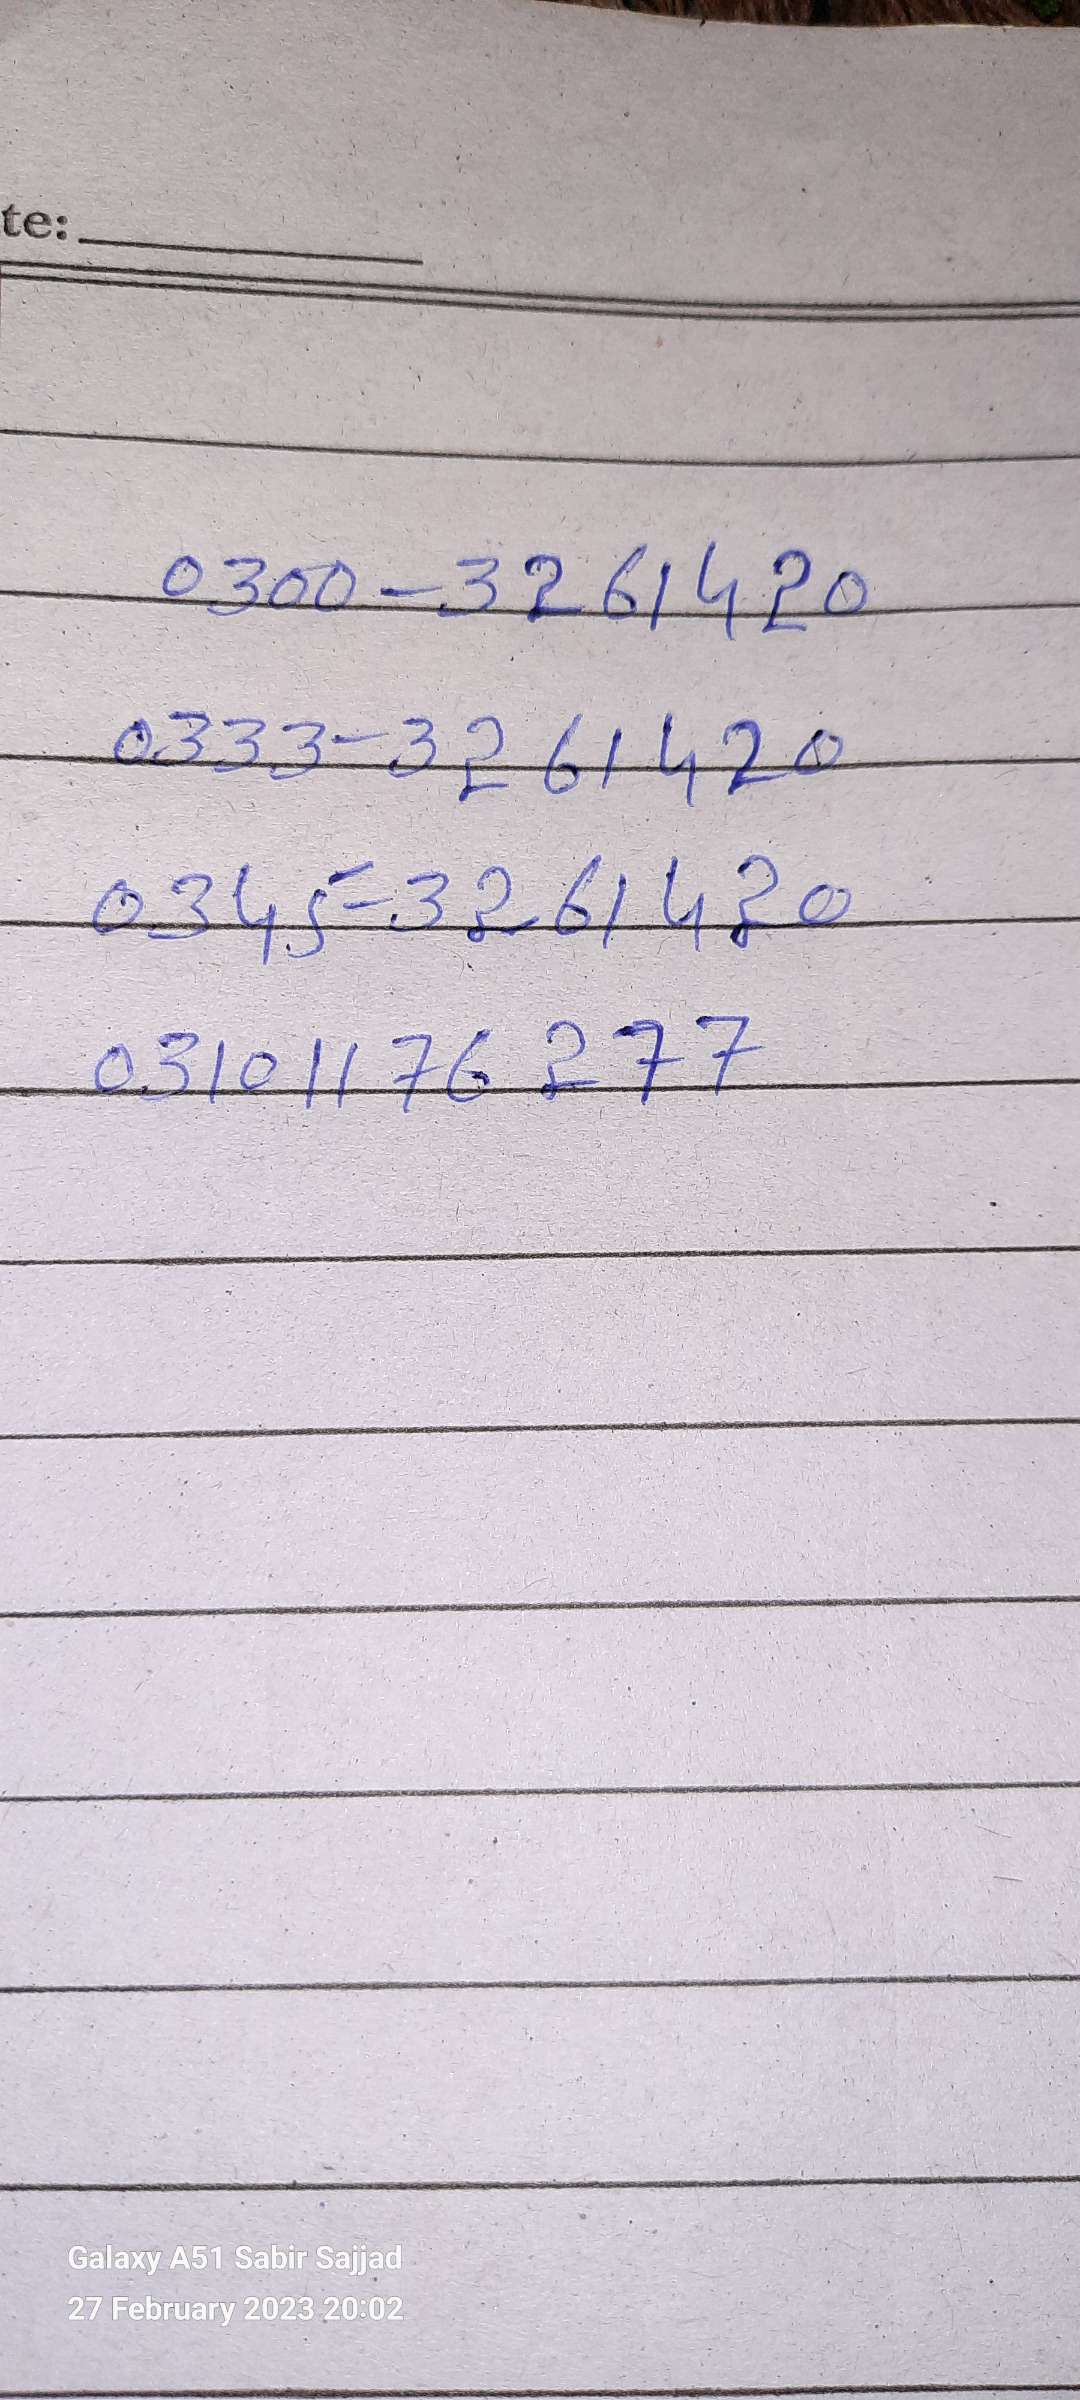 te:
0300-3261420
0333-3261420
0345-3261420
03101176277
Galaxy A51 Sabir Sajjad
27 February 2023 20:02